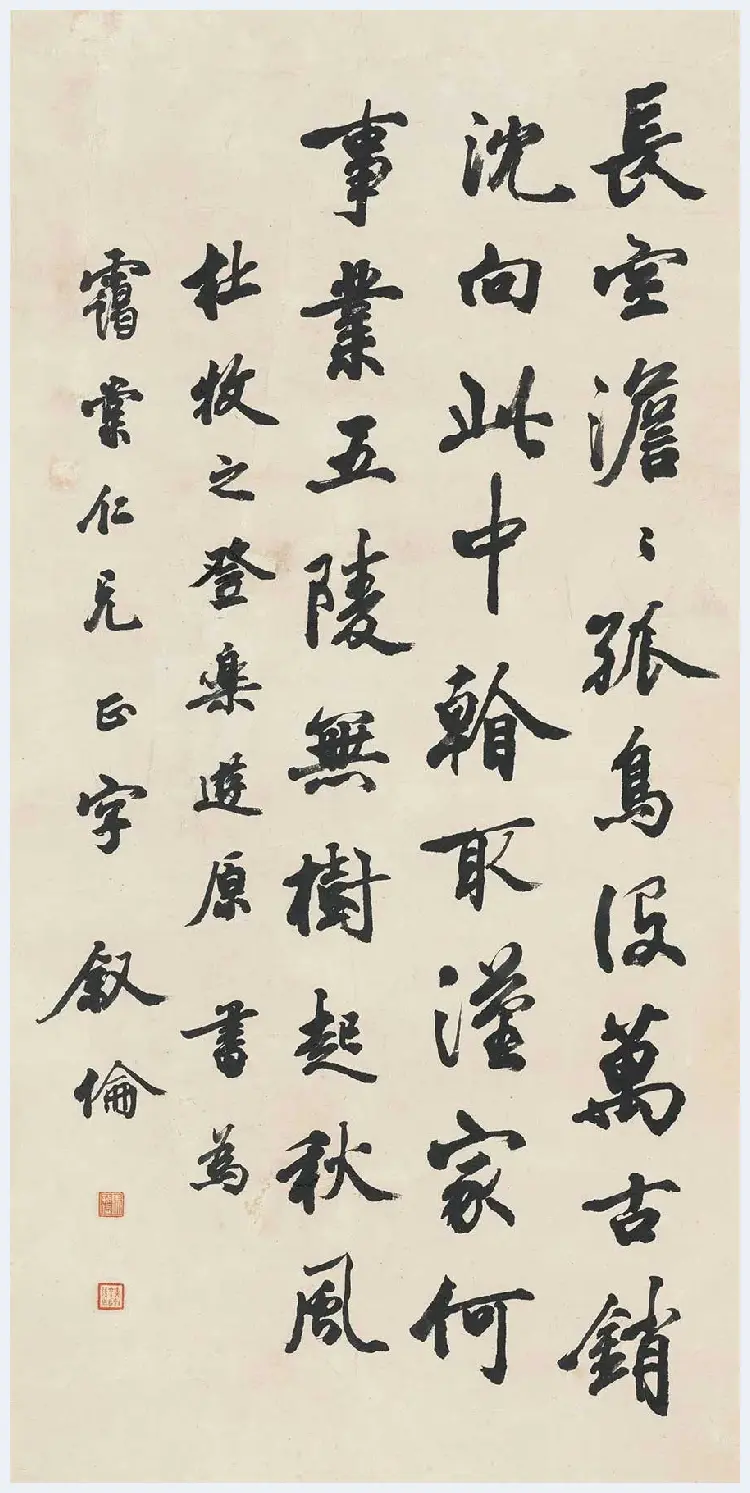 長空澹〻孤鳥沒萬古銷
沈向此中看取漢家何
事業五陵無樹起秋風
杜牧之登樂遊原 書為
靄棠仁兄正字 叙倫